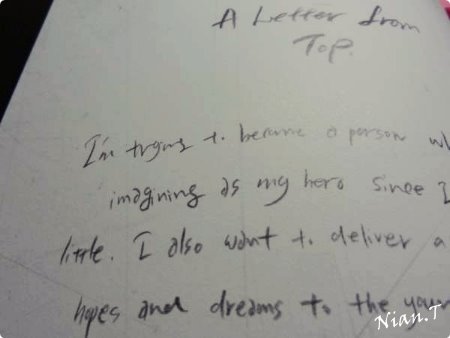 A Letter from
Top.
I'm trying to become a person
imagining as my hero since I
little. I also want to deliver a
hopes and dreams to the
Nian.T